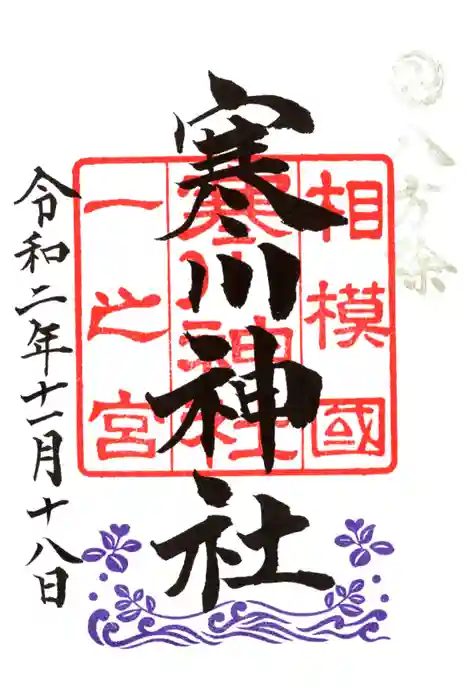 八方除
相模國
寒川神社
寒川神社
一之宮
令和二年十一月十八日